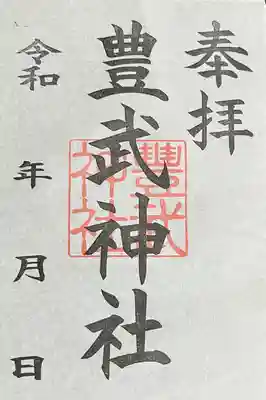 奉拝
豊武神社
豐武神社
令和 年 月 日